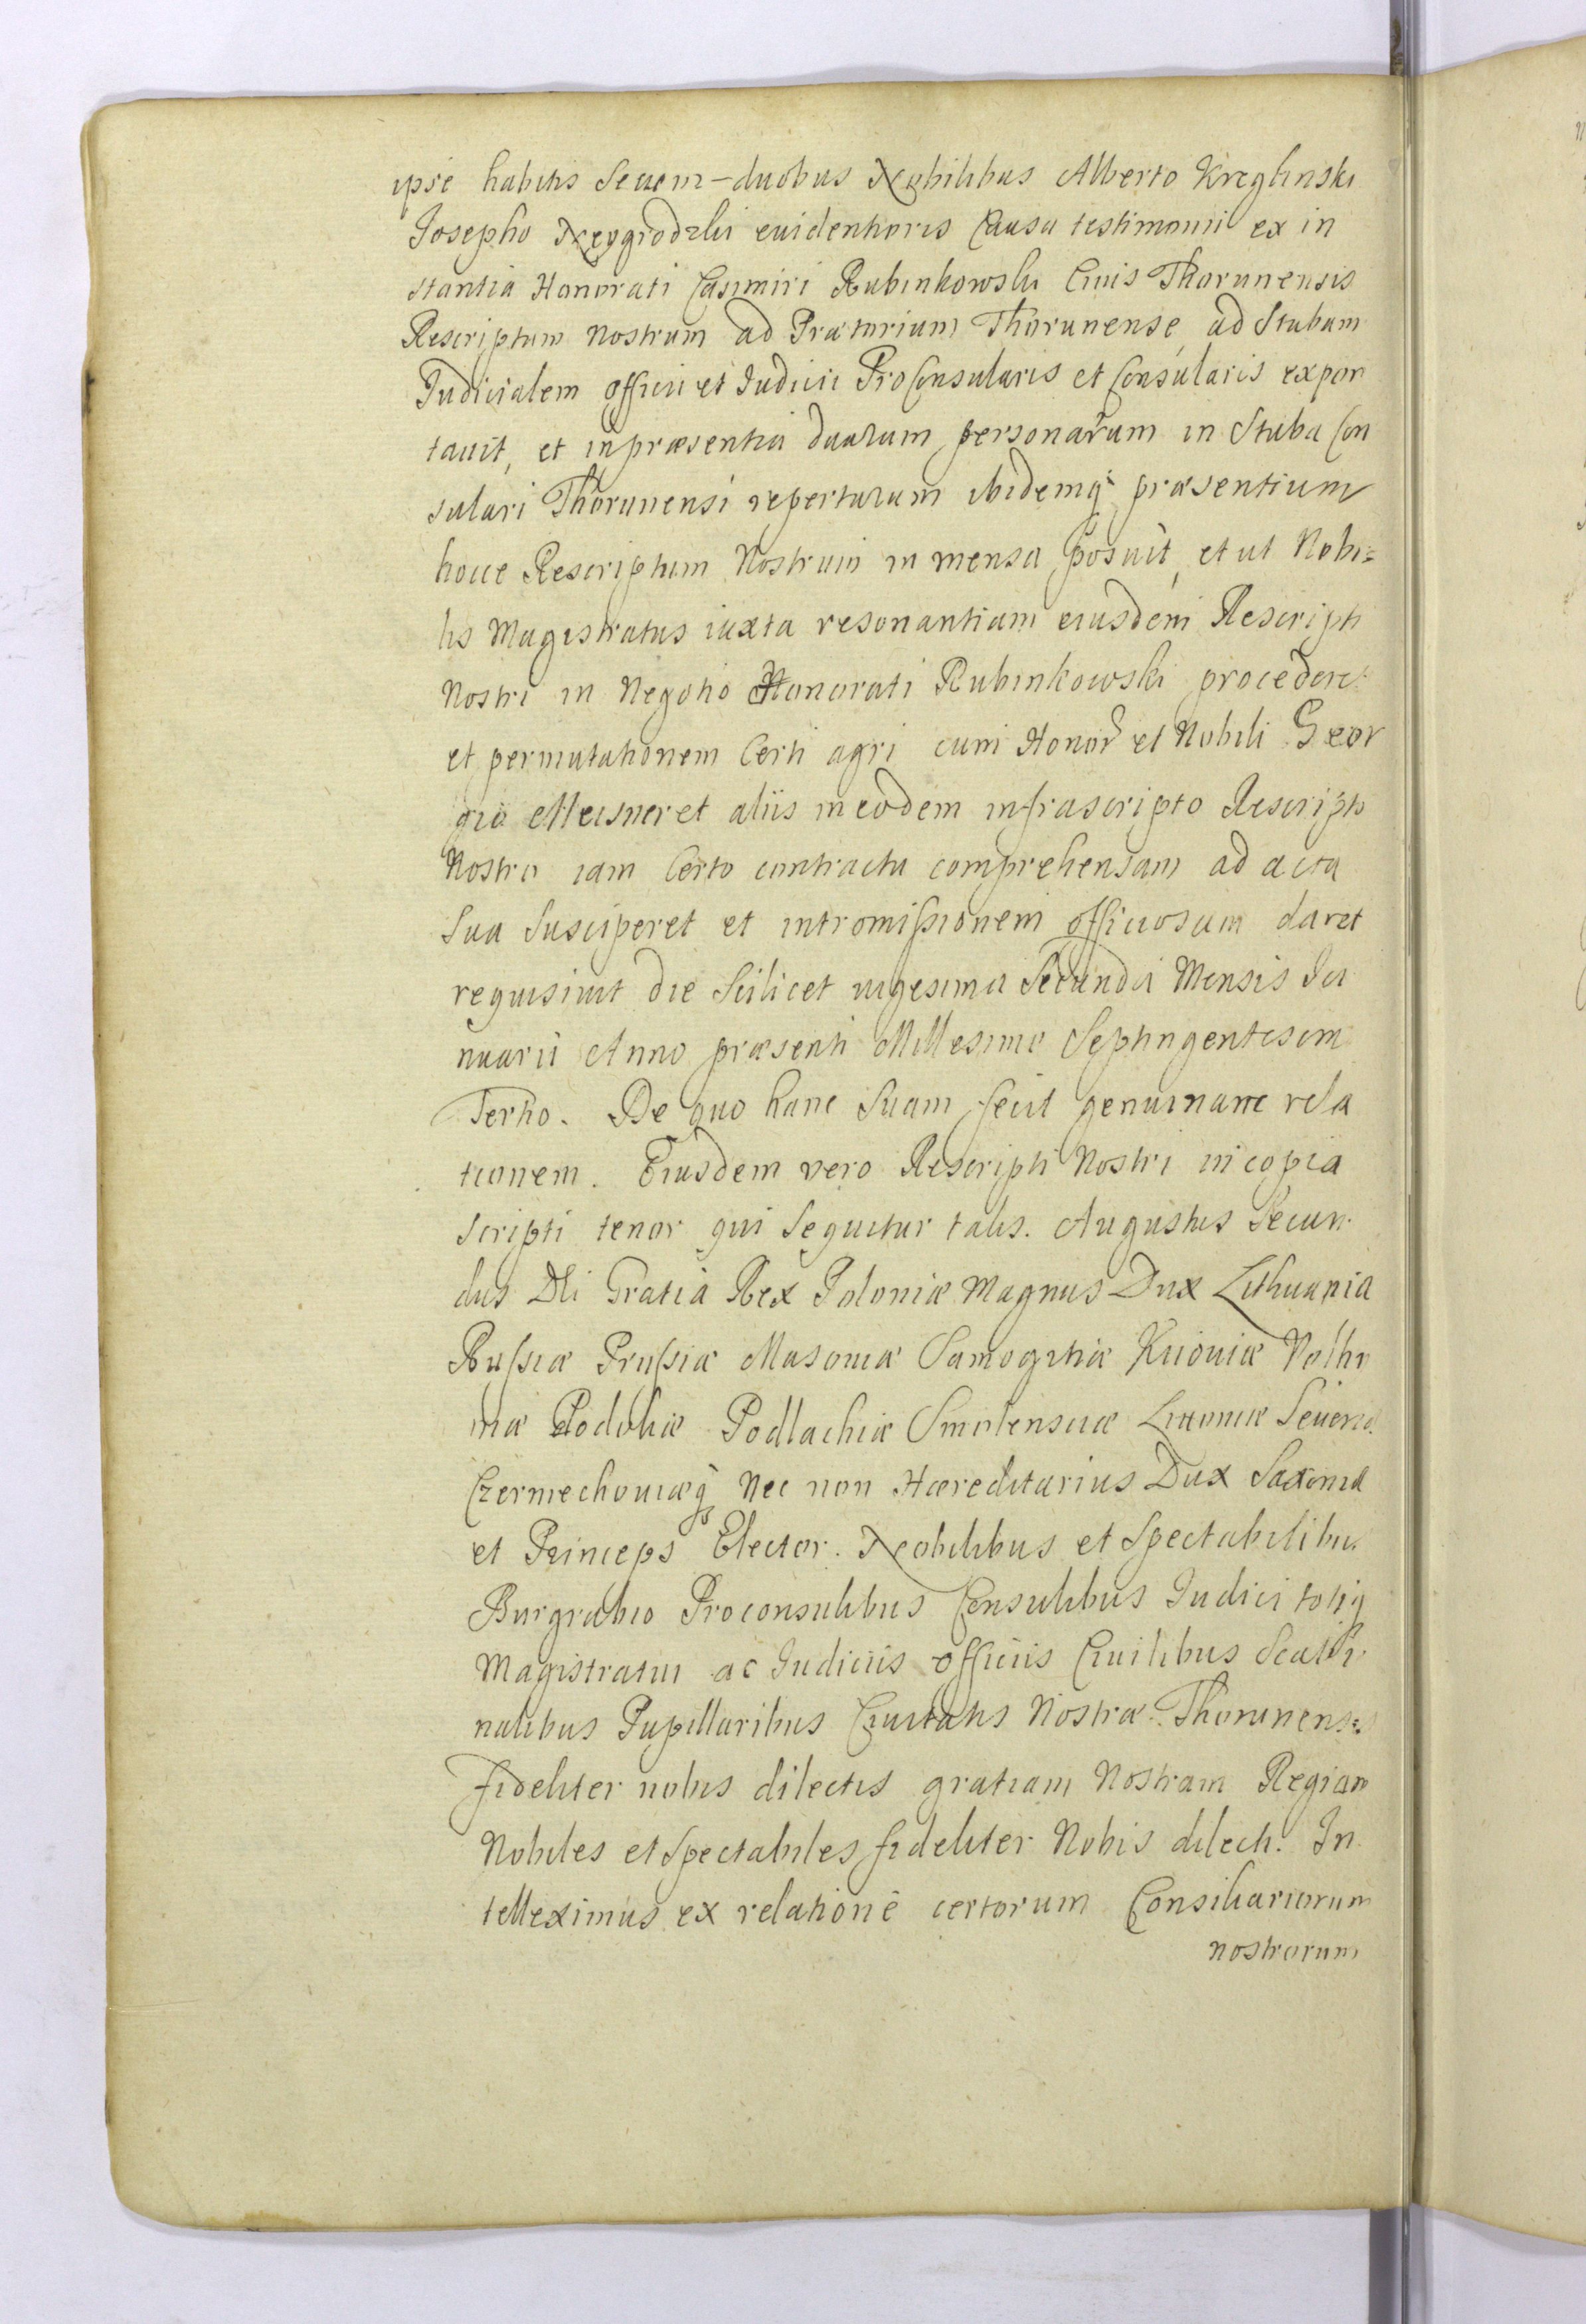 ipse habitis Secum duobus Nobilibus Alberto Kreglinski
Josepho Neygrodzki euidentioris Causa testimonii ex in
stantia Honorati Casimiri Rubinkowski Ciuis Thorunensis
Rescriptum Nostrum ad Prætorium Thorunense, ad Stubam
Judicialem officii et Judicii ProConsularis et Consularis expor
tauit, et in præsentia duarum personarum in Stuba Con
sulari Thorunensi repertarum ibidemq præsentium
hocce Rescriptum Nostrum in mensa posuit, et ut Nobi=
lis Magistratus iuxta resonantiam eiusdem Rescripti
Nostri in Negotio Honorati Rubinkowski procederet
et permutationem Certi agri cum Honor et Nobili Geor
gio Meisner et aliis in eodem infrascripto Rescripto
Nostro iam Certo contractu comprehensam ad acta
Sua Susciperet et intromissionem officiosam daret
requisiuit die Scilicet uigesima Secunda Mensis Ja
nuarii Anno præsenti Millesimo Septingentesimo
Tertio. De quo hanc Suam fecit genuinam rela
tionem. Eiusdem vero Rescripti Nostri in copia
scripti tenor qui Sequitur talis. Augustus Secun
dus Dei Gratia Rex Poloniæ Magnus Dux Lithuania
Russiæ Prussiæ Masouiæ Samogitiæ Kiiouiæ Volhi
niæ Podoliæ Podlachiæ Smolensciæ Liuoniæ Seueriæ
Czerniechouiæq Nec non Hæreditarius Dux Saxoniæ
et Princeps Elector. Nobilibus et Spectabilibus
Burgrabio Proconsulibus Consulibus Judici totiq
Magistratui ac Judiciis officiis Ciuilibus Scabi
nalibus Pupillaribus Ciuitatis Nostræ Thorunensis
fideliter nobis dilectis gratiam Nostram Regiam
Nobiles et Spectabiles fideliter Nobis dilecti. In
telleximus ex relatione certorum Consiliariorum
nostrorum